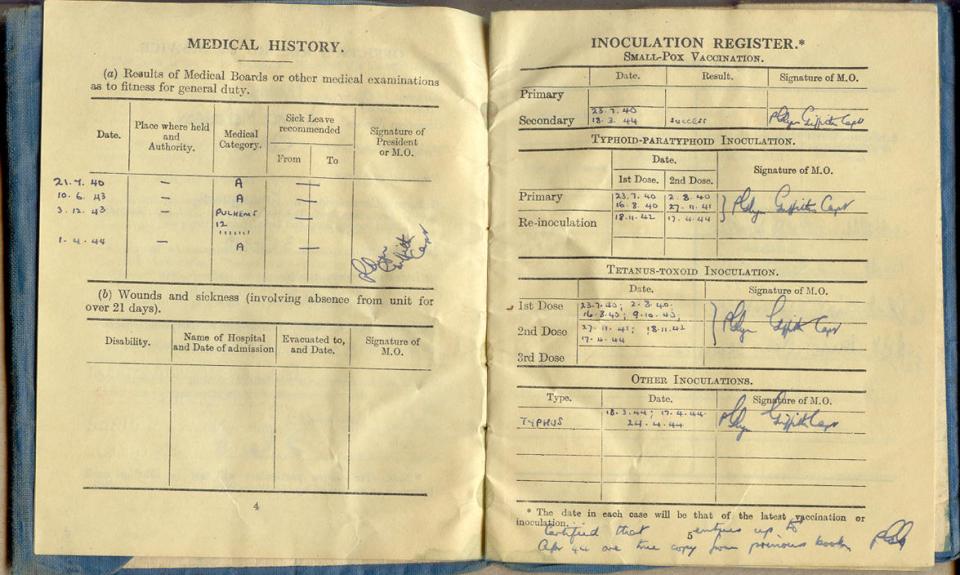 MEDICAL HISTORY.
(a) Results of Medical Boards or other medical examinations
as to fitness for general duty.
Date.
Place where held
and
Authority.
Medical
Category.
Sick Leave
recommended
From
To
Signature of
President
or M.O.
21.7.40 — A —
10.6.43 — A —
3.12.43 — PULHEMS —
12
1111111
1.4.44 — A —
Griffith
Capt
(b) Wounds and sickness (involving absence from unit for
over 21 days).
Disability.
Name of Hospital
and Date of admission
Evacuated to,
and Date.
Signature of
M.O.
4
INOCULATION REGISTER.*
SMALL-POX VACCINATION.
Date. Result. Signature of M.O.
Primary
23.7.40
Secondary 18.3.44 success Griffith Capt
TYPHOID-PARATYPHOID INOCULATION.
Date.
Signature of M.O.
1st Dose. 2nd Dose.
Primary 23.7.40 2.8.40
16.8.40 27.11.41 Griffith Capt
Re-inoculation 18.11.42 17.4.44
TETANUS-TOXOID INOCULATION.
Date. Signature of M.O.
1st Dose 23.7.40; 2.8.40.
16.8.40; 9.10.40;
2nd Dose 27.11.41; 18.11.42 Griffith Capt
17.4.44
3rd Dose
OTHER INOCULATIONS.
Type. Date. Signature of M.O.
18.3.44; 17.4.44
TYPHUS 24.4.44 Griffith Capt
* The date in each case will be that of the latest vaccination or
inoculation.
Certified that entries up to
5
Apr 44 are true copy from previous book